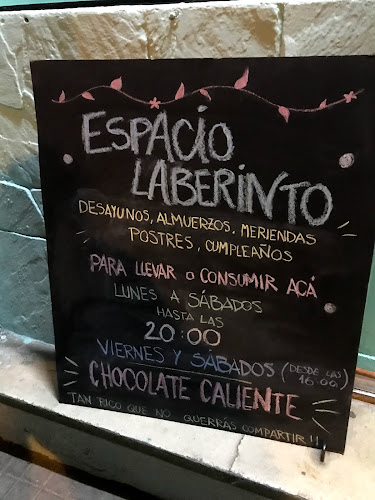 ESPACIO
LABERINTO
DESAYUNOS, ALMUERZOS, MERIENDAS
POSTRES, CUMPLEAÑOS
PARA LLEVAR O CONSUMIR ACÁ
LUNES A SÁBADOS
HASTA LAS
20:00
VIERNES Y SÁBADOS (DESDE LAS 16:00)
CHOCOLATE CALIENTE
TAN RICO QUE NO QUERRÁS COMPARTIR!!